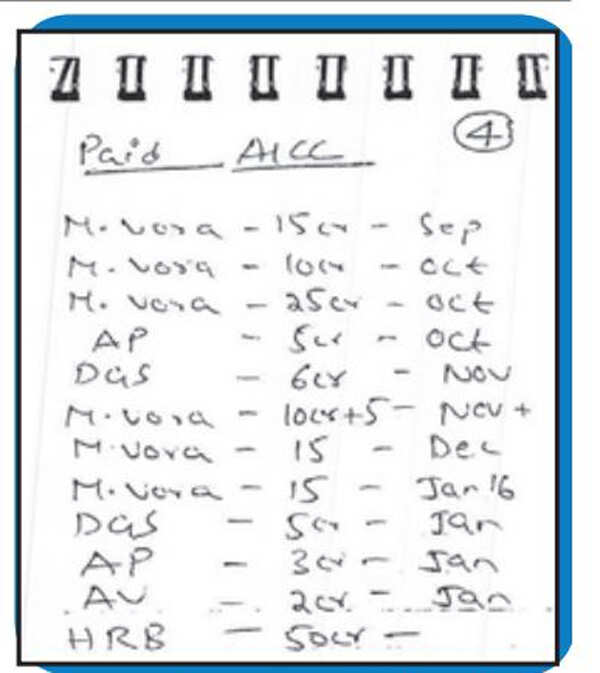 4
Paid AICC
M. Vora - 15cr - Sep
M. Vora - 10cr - Oct
M. Vora - 25cr - Oct
AP - 5cr - Oct
DGS - 6cr - Nov
M. Vora - 10cr+5 - Nov +
M. Vora - 15 - Dec
M. Vora - 15 - Jan 16
DGS - 5cr - Jan
AP - 3cr - Jan
AV - 2cr. - Jan
HRB - 50cr -